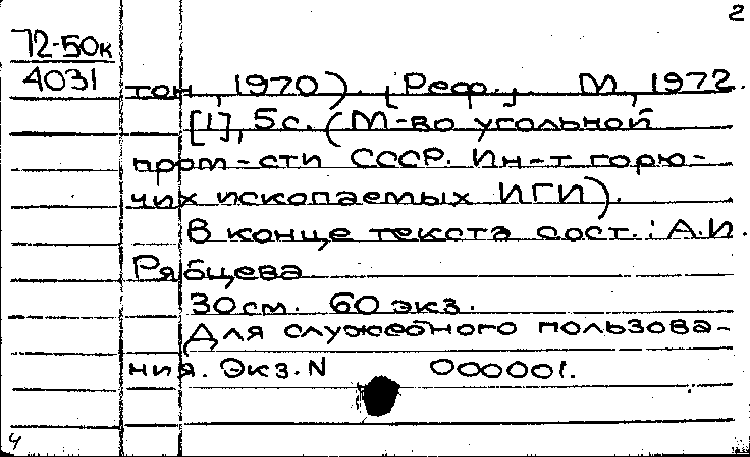 2
72-50к
4031
тон, 1970). [Реф.]. М, 1972.
[1], 5с. (М-во угольной
пром-сти СССР. Ин-т горю-
чих ископаемых ИГИ).
В конце текста сост.: А.И.
Рябцева
30см. 60 экз.
Для служебного пользова-
ния. Экз. N 000001.
4